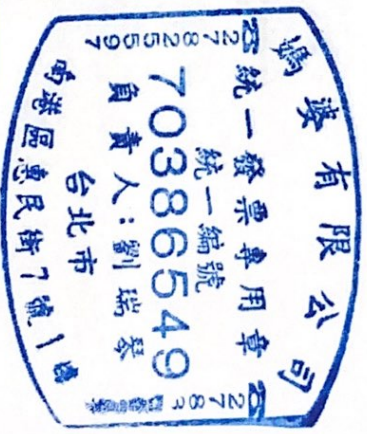 媽婆有限公司
統一發票專用章
統一編號
70386549
負責人：劉瑞琴
台北市
南港區惠民街7號1樓
☎27825597
☎278